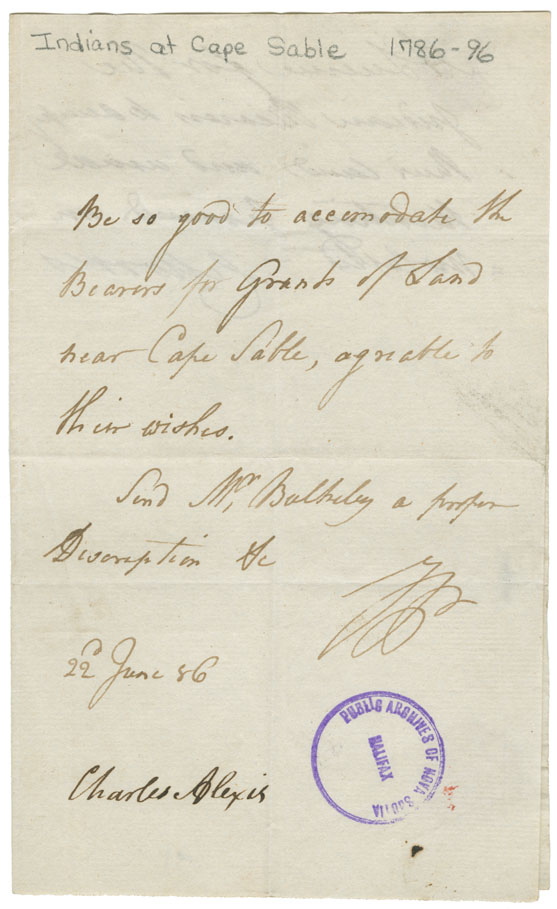 Indians at Cape Sable 1786-96
Be so good to accomodate the
Bearers for Grants of Land
near Cape Sable, agreable to
their wishes.
Send Mr. Bulkeley a proper
Discription &c
22d June 86
Charles Alexis
PUBLIC ARCHIVES OF NOVA SCOTIA
HALIFAX